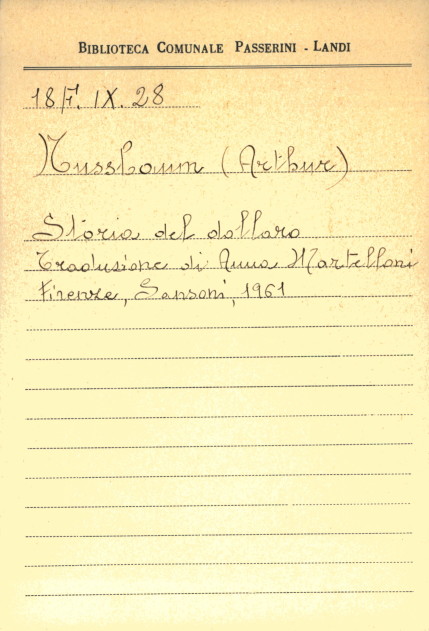 BIBLIOTECA COMUNALE PASSERINI - LANDI
18F. IX. 28
Nussbaum (Arthur)
Storia del dollaro
Traduzione di Anna Martelloni
Firenze, Sansoni, 1961